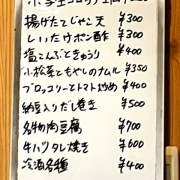 揚げたてじゃこ天 ¥300
しいたけポン酢 ¥300
塩こんぶときゅうり
小松菜ともやしのナムル ¥350
ブロッコリーとトマト炒め ¥400
納豆入りだし巻き ¥500
名物肉豆腐 ¥700
牛バタレ焼き ¥600
冷酒各種 ¥400